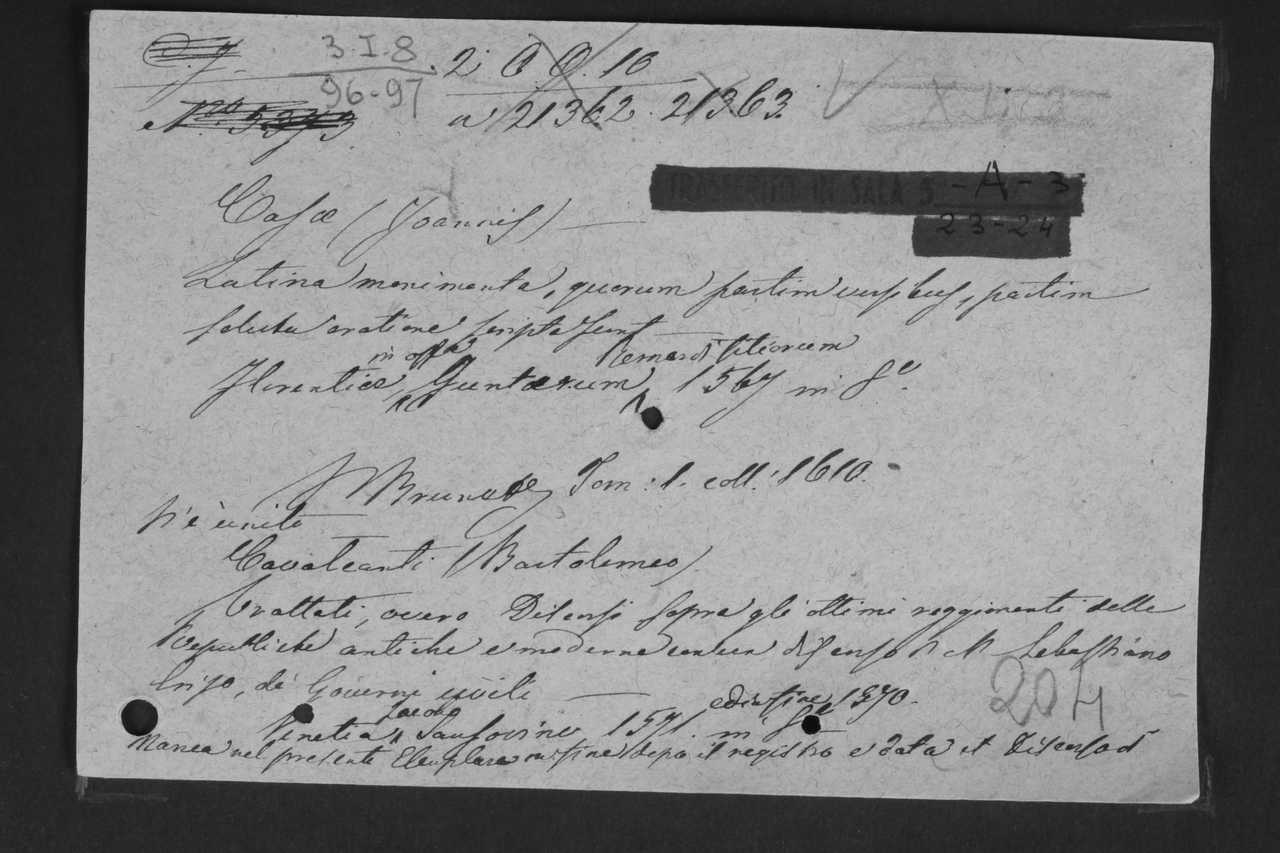 3.I.8. 2. O. O. 10
96-97
a 21362. 21363.
TRASFERITO IN SALA 5 -A-3
23-24
Casæ (Joannis)
Latina monimenta, quorum partim versibus, partim
soluta oratione scripta sunt
in offa Bernardi filiorum
Florentiæ, Iuntarum, 1567 in 8º.
Brunet, Tom: 1. coll. 1610.
V'è unito
Cavalcanti (Bartolomeo)
Trattati, overo Discorsi sopra gli ottimi reggimenti delle
Republiche antiche e moderne con un discorso di M. Sebastiano
Erizo, de' Governi civili
ed in fine 1570.
Jacopo
Venetia, Sansovino 1571. in
Manca nel presente Esemplare in fine dopo il registro e data il Discorso d
204